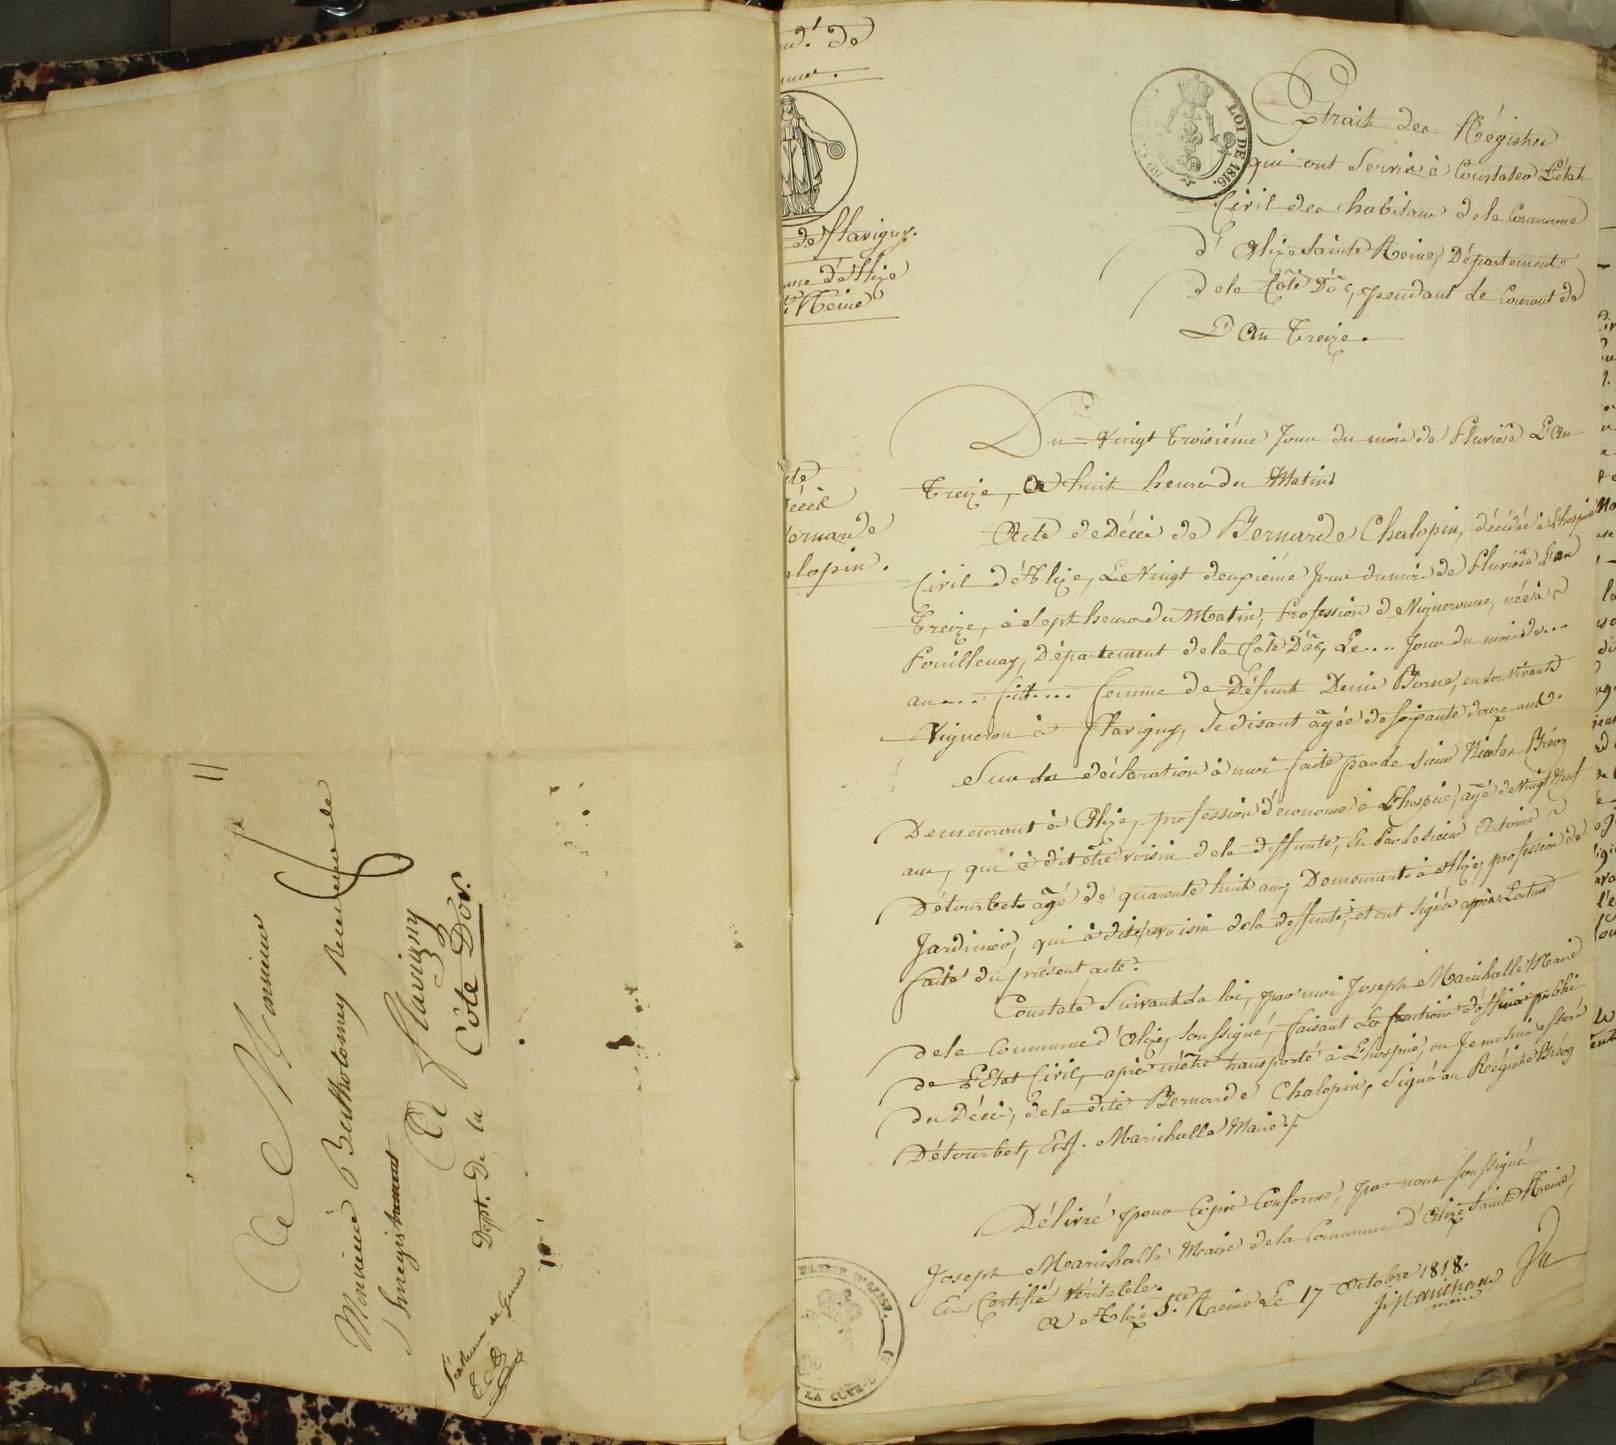 A Monsieur
Monsieur Berthelomey Receveur de
l'Enregistrement
A Flavigny
Dept. De la Côte Dor.
de
de flavigny.
d'Alize
Reine
LOI DE 1816.
Extrait des Régistres
qui ont Servir à Constater L'état
Civil des habitans de la Commune
d'Alize Sainte Reine, Département
de la Côte D'or, pendant Le Courant de
L'An treize.
Décès
Bernarde
lopin.
Du Vingt troisiéme Jour du mois de Pluviôse L'An
treize, A huit heures du Matin
Acte de Décès de Bernarde Chalopin, décédée à L'hospice
Civil d'Alize, Le Vingt deuxiéme Jour du mois de Pluviôse L'an
Treize, à Sept heures du Matin, Profession de Vigneronne, née à
Pouillenay, Département de la Côte D'or, Le .... Jour du mois de ...
an ... fut .... femme de Défunt Denis Borne, en son vivant
Vigneron à Flavigny, Se disant âgée de soixante douze ans.
Sur La déclaration à moi faite par le Sieur Nicolas Bréon
Demeurant à Alize, profession d'économe à L'hospice, agé de Vingt Neuf
ans, qui à dit être voisin de la deffunte, Et Par le sieur Antoine
Détourbet agé de quarente huit ans, Demeurant à Alize, profession de
Jardinier, qui à dit voisin de la deffunte, et ont Signé après Lecture
faite du présent acte.
Constaté Suivant La loi, par moi Joseph Marichalle Maire
de la Commune d'Alize, Soussigné, faisant Les fonctions d'officier public
de L'Etat Civil, après m'être transporté à L'hospice, ou Je me suis assuré
du Décès, de la dite Bernarde Chalopin, Signé au Régistre Bréon
Détourbet, Et J. Marichalle Maire.
Délivré pour Copie Conforme, par nous Soussigné
Joseph Marichalle Maire de la Commune d'Alize Sainte Reine,
Et Certifié Véritable.
A Alize Ste. Reine Le 17 Octobre 1818.
J. Marichalle
maire